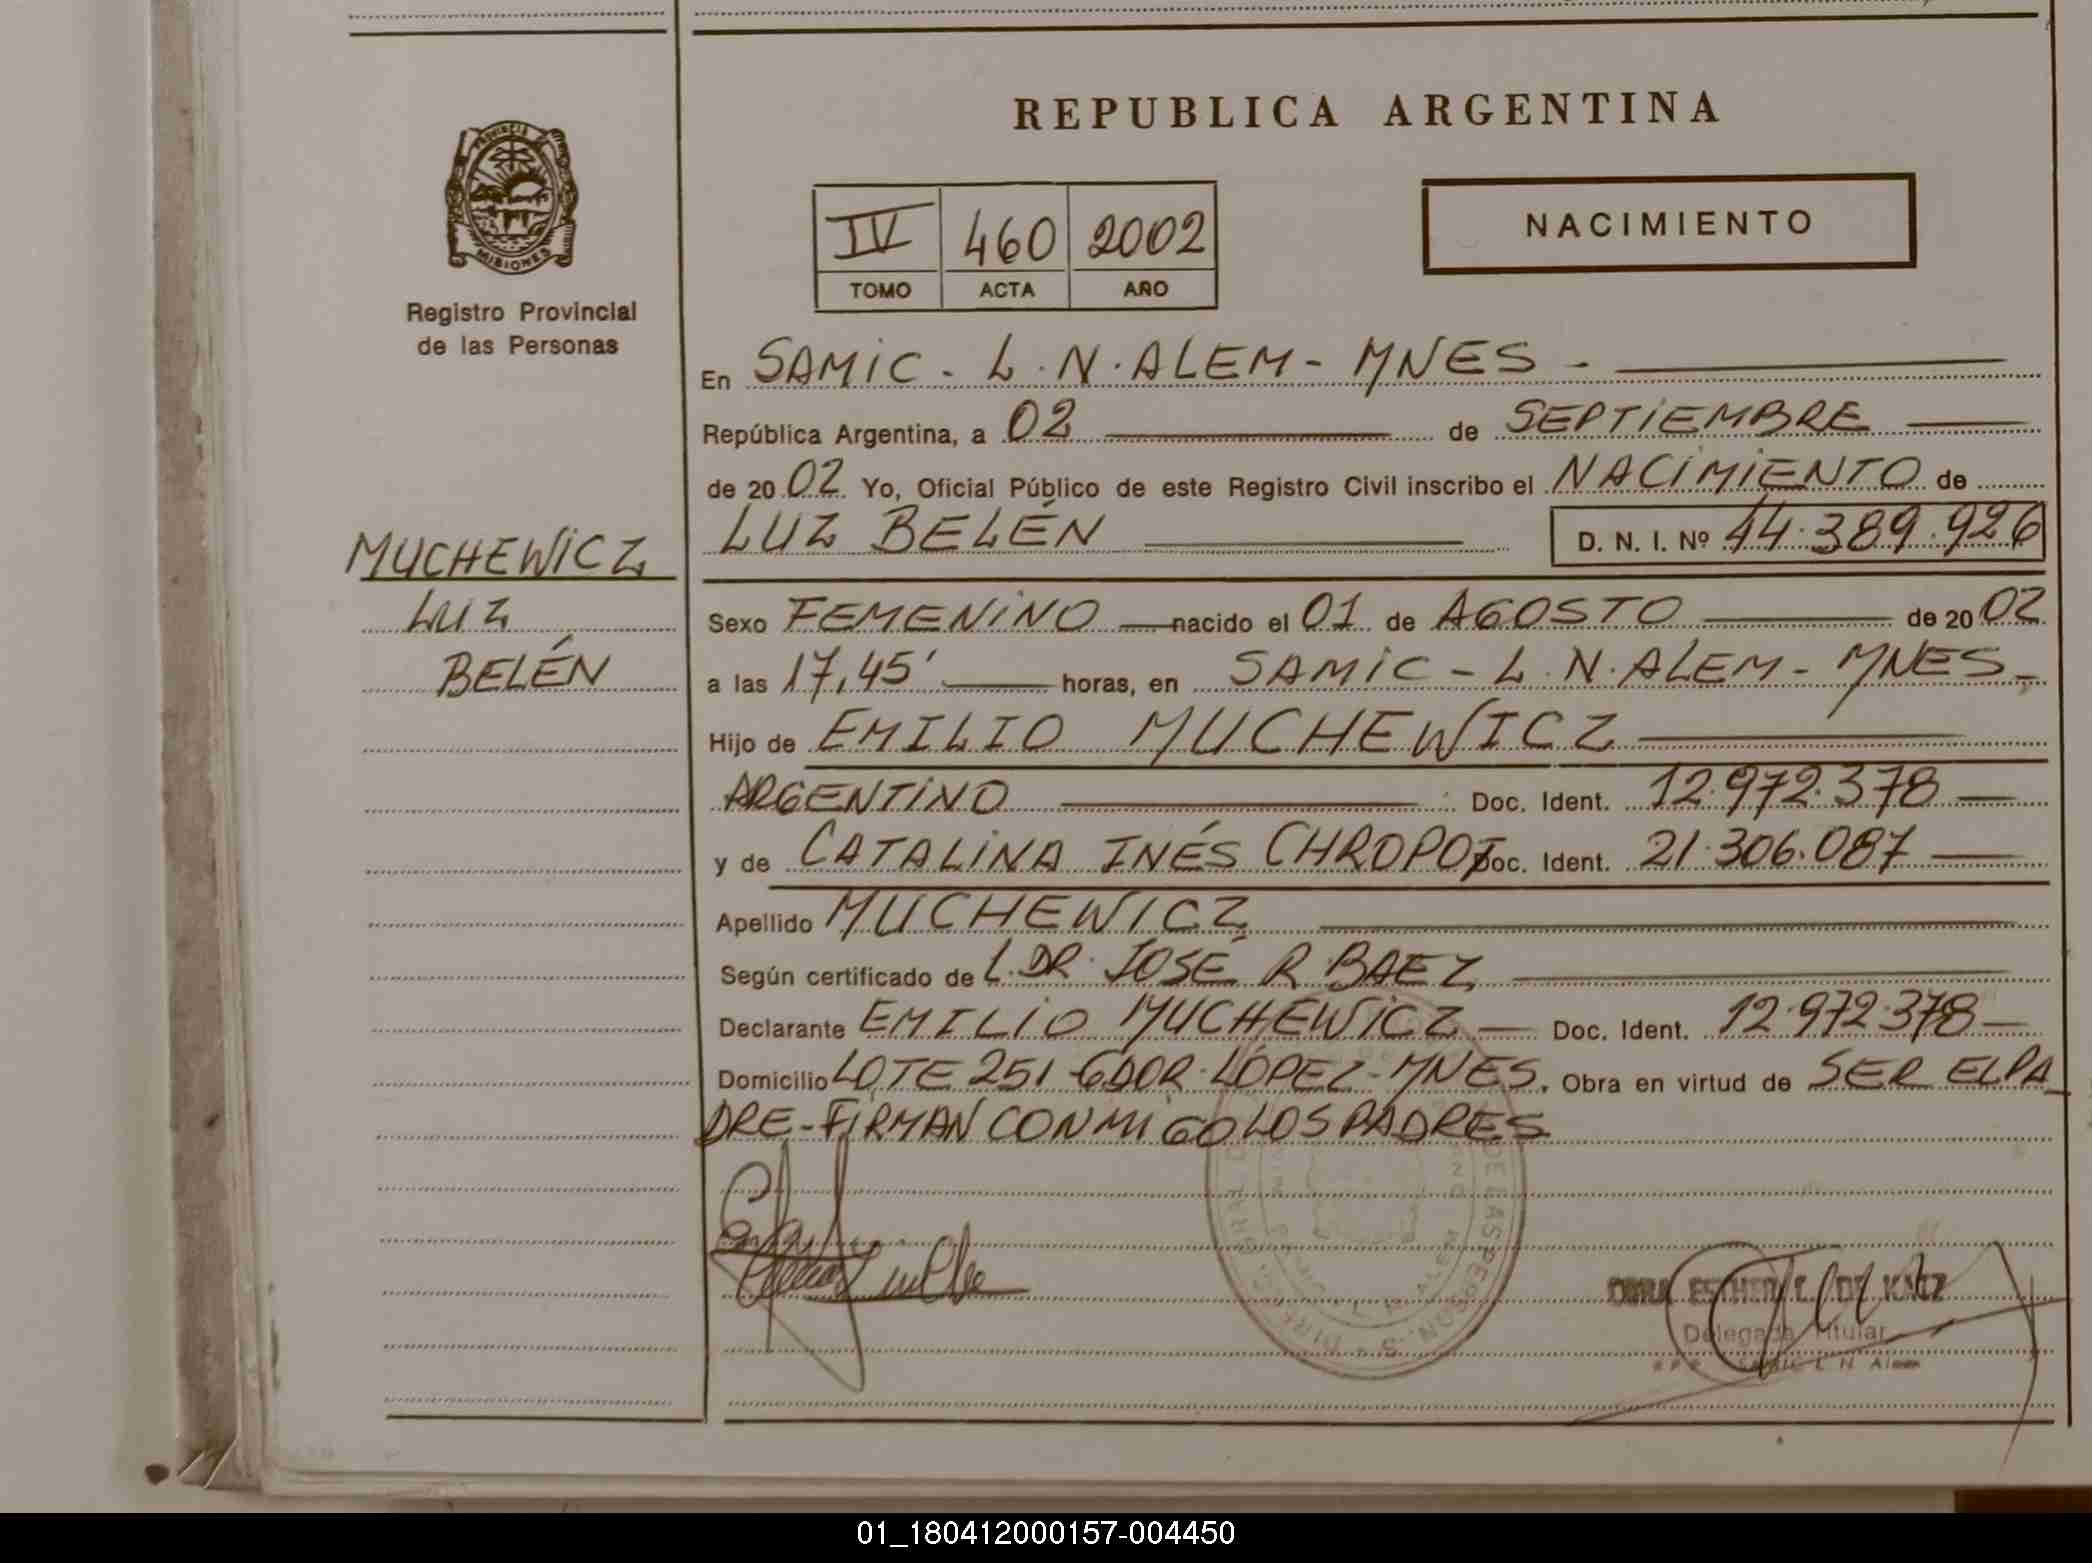 REPUBLICA ARGENTINA
PROVINCIA
MISIONES
Registro Provincial
de las Personas
IV 460 2002
TOMO ACTA AÑO
NACIMIENTO
En SAMIC - L.N. ALEM - MNES -
República Argentina, a 02 de SEPTIEMBRE
de 2002 Yo, Oficial Público de este Registro Civil inscribo el NACIMIENTO de
LUZ BELÉN D. N. I. Nº 44.389.926
MUCHEWICZ
LUZ
BELÉN
Sexo FEMENINO nacido el 01 de AGOSTO de 2002
a las 17,45' horas, en SAMIC - L.N. ALEM - MNES -
Hijo de EMILIO MUCHEWICZ
ARGENTINO Doc. Ident. 12.972.378
y de CATALINA INÉS CHROPOT Doc. Ident. 21.306.087
Apellido MUCHEWICZ
Según certificado de L. DR. JOSÉ R. BAEZ
Declarante EMILIO MUCHEWICZ Doc. Ident. 12.972.378
Domicilio LOTE 251 - GDOR. LÓPEZ - MNES. Obra en virtud de SER EL PA
DRE - FIRMAN CONMIGO LOS PADRES
DE LAS PERSON
L. N. ALEM
ESTHER
Delegada Titular
L. N. Alem
01_180412000157-004450